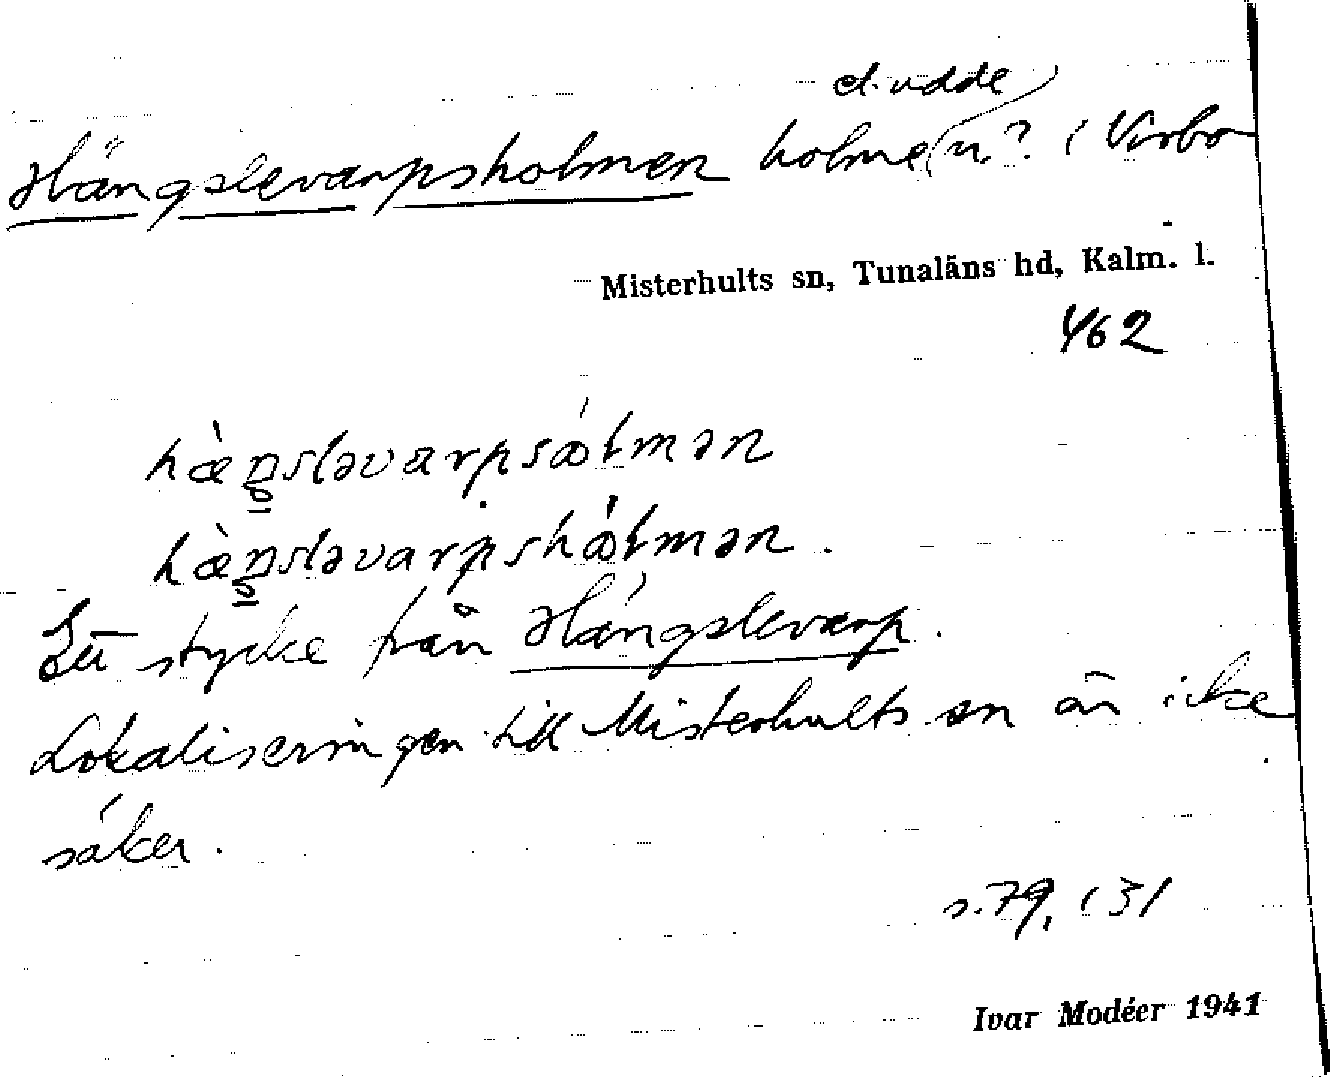 el. udde
Hängslevarpsholmen holme n.? i Virbo
Misterhults sn, Tunaläns hd, Kalm. l.
462
hæ̀ŋ̥sləvarpsɷ́ɫmən
hæ̀ŋ̥sləvarpshɷ́ɫmən.
Ett stycke från Hängslevarp.
Lokaliseringen till Misterhults sn är icke
säker.
s. 79, 131
Ivar Modéer 1941